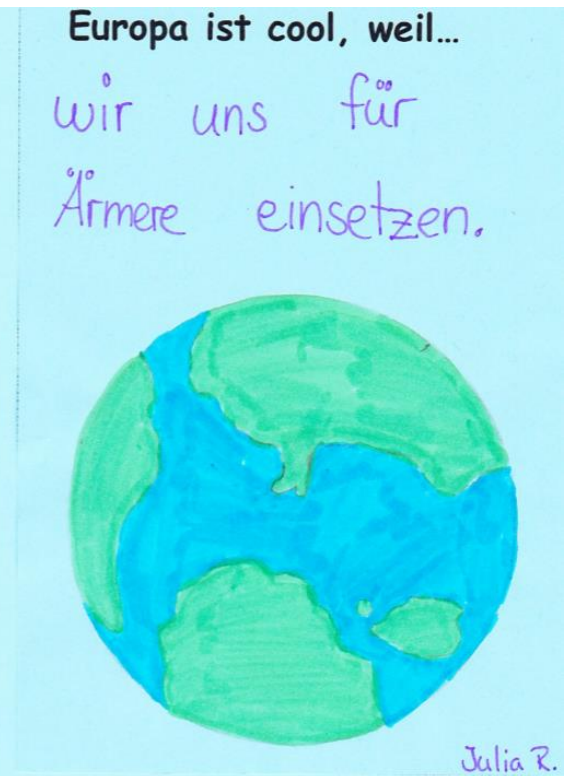 Europa ist cool, weil...
wir uns für
Ärmere einsetzen.
Julia R.